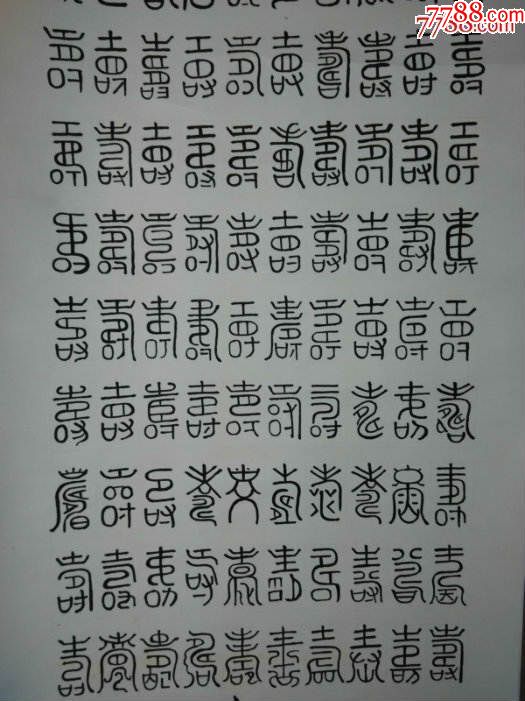 7788.com
壽壽壽壽壽壽壽壽壽壽
壽壽壽壽壽壽壽壽壽壽
壽壽壽壽壽壽壽壽壽壽
壽壽壽壽壽壽壽壽壽壽
壽壽壽壽壽壽壽壽壽壽
壽壽壽壽壽壽壽壽壽壽
壽壽壽壽壽壽壽壽壽壽
壽壽壽壽壽壽壽壽壽壽